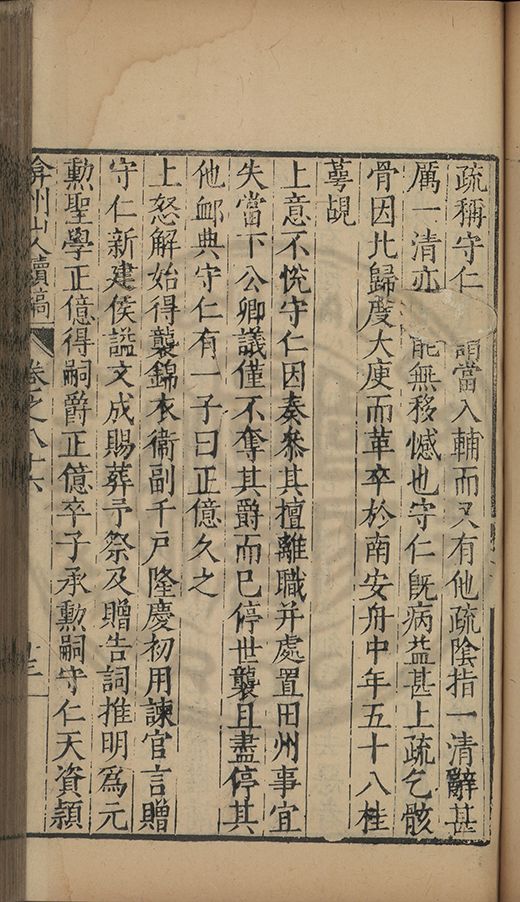 疏稱守仁當入輔而又有他疏陰指一清辭甚
厲一清亦能無移憾也守仁旣病益甚上疏乞骸
骨因北歸度大庾而革卒於南安舟中年五十八桂
萼覘
上意不悅守仁因奏叅其擅離職并處置田州事宜
失當下公卿議僅不奪其爵而已停世襲且盡停其
他䘏典守仁有一子曰正億久之
上怒解始得襲錦衣衛副千戶隆慶初用諫官言贈
守仁新建侯謚文成賜葬予祭及贈告詞推明爲元
勲聖學正億得嗣爵正億卒子承勲嗣守仁天資頴
弇州山人續稿 卷之八十六 十三